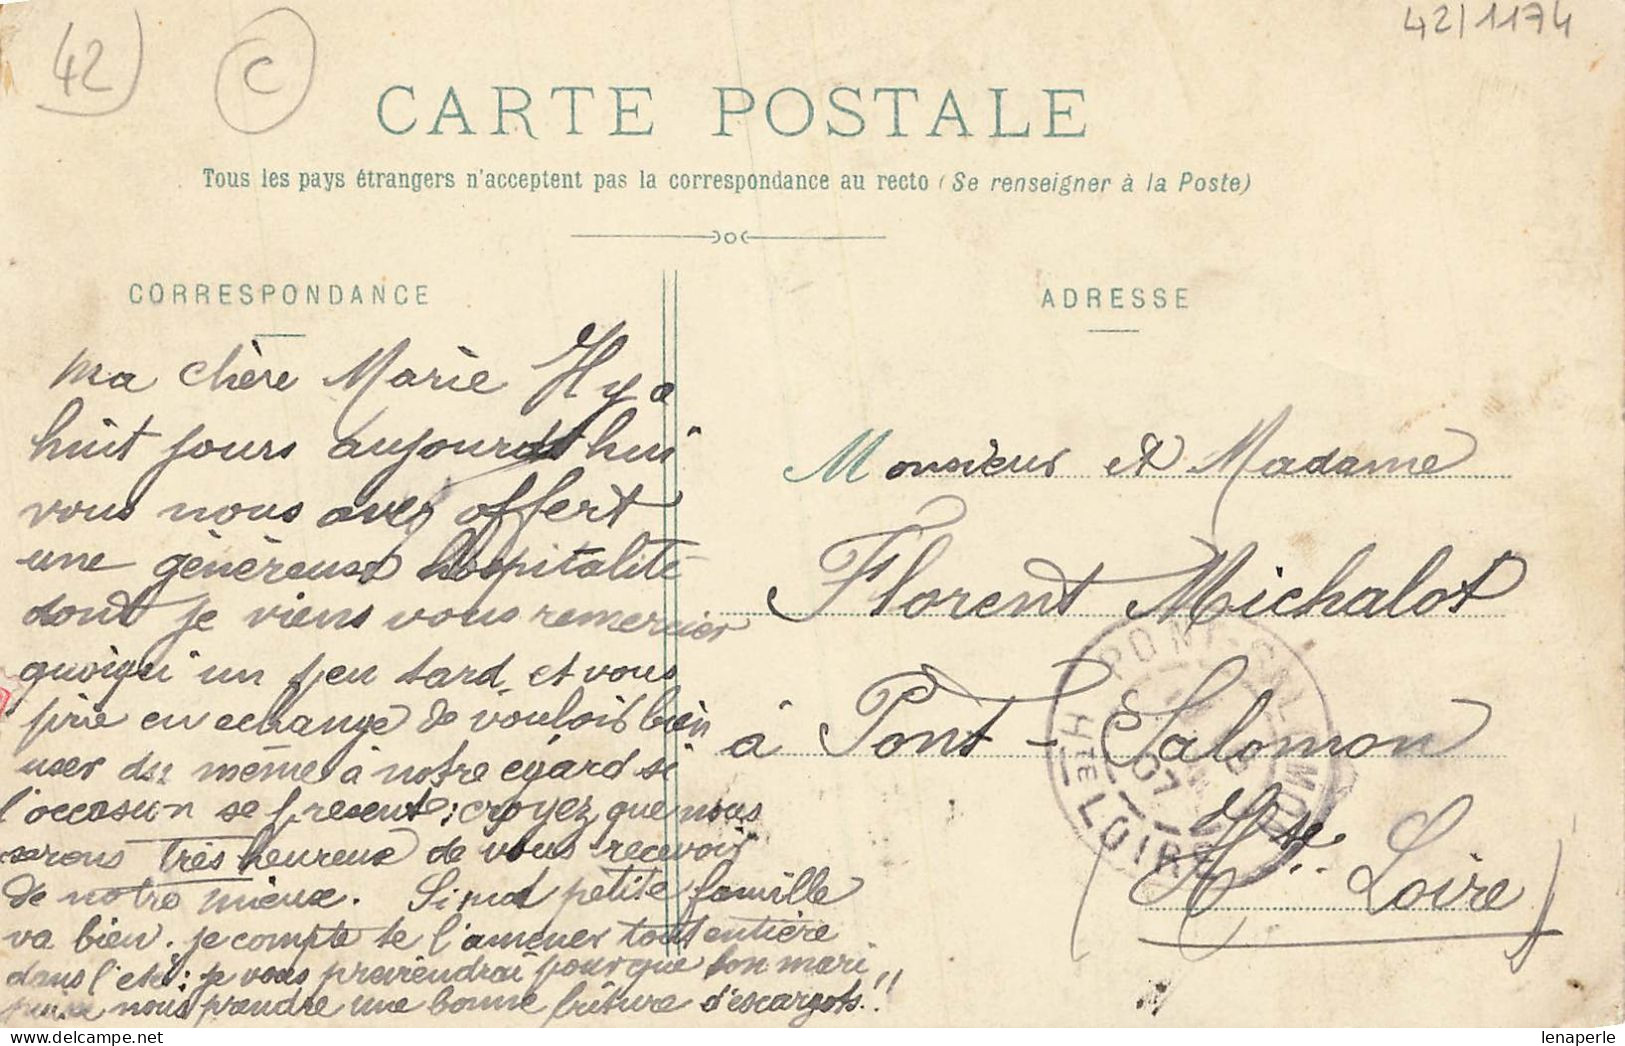 42
C
42/1174
CARTE POSTALE
Tous les pays étrangers n'acceptent pas la correspondance au recto (Se renseigner à la Poste)
CORRESPONDANCE
Ma chère Marie Il y a
huit jours aujourd'hui
vous nous avez offert
une généreuse hospitalité
dont je viens vous remercier
quoiqu'un peu tard, et vous
prie en echange de vouloir bien
user du même à notre égard si
l'occasion se présente; croyez que nous
serons très heureux de vous recevoir
de notre mieux. Si petite famille
va bien. je compte te l'amener tout entière
dans l'été; je vous previendrai pour que ton mari
puisse nous prendre une bonne friture d'escargots.!!
ADRESSE
Monsieur et Madame
Florent Michalot
à Pont-Salomon
(Hte. Loire)
PONT-SALOMON
07
HTE LOIRE
lenaperle